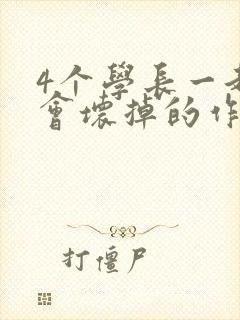 4个學長一
會壞掉的作
打僵尸